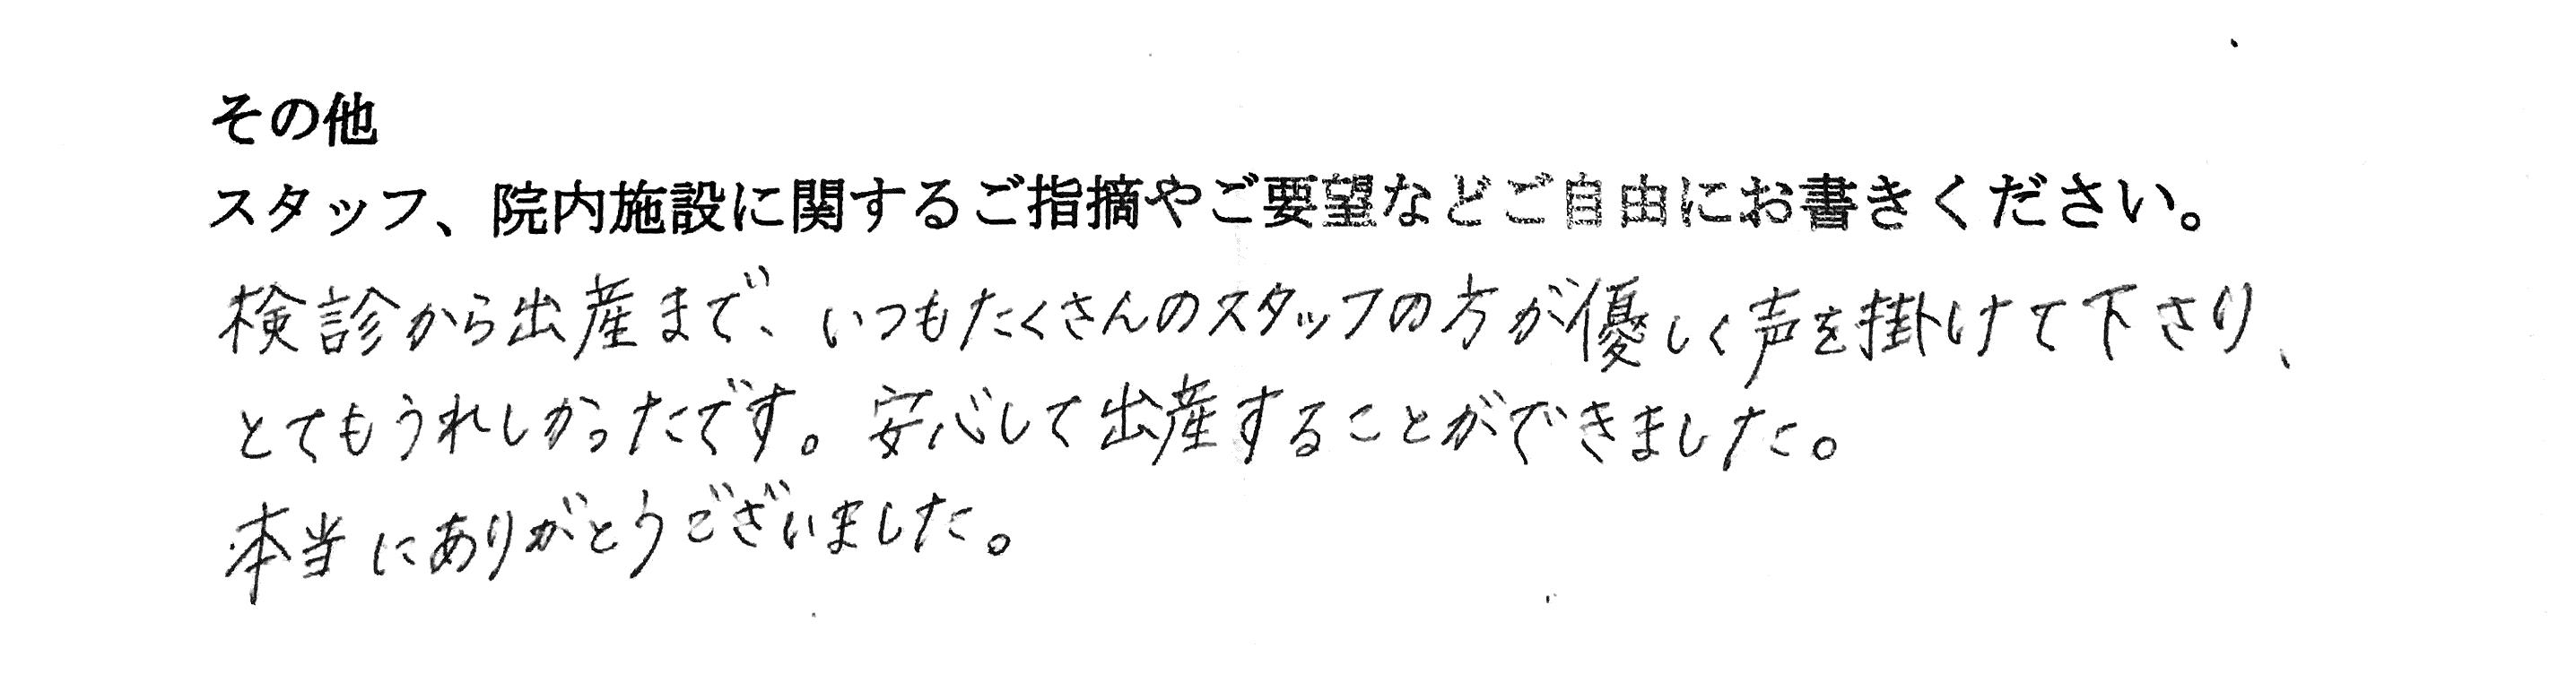 その他
スタッフ、院内施設に関するご指摘やご要望などご自由にお書きください。
検診から出産まで、いつもたくさんのスタッフの方が優しく声を掛けて下さり、
とてもうれしかったです。安心して出産することができました。
本当にありがとうございました。